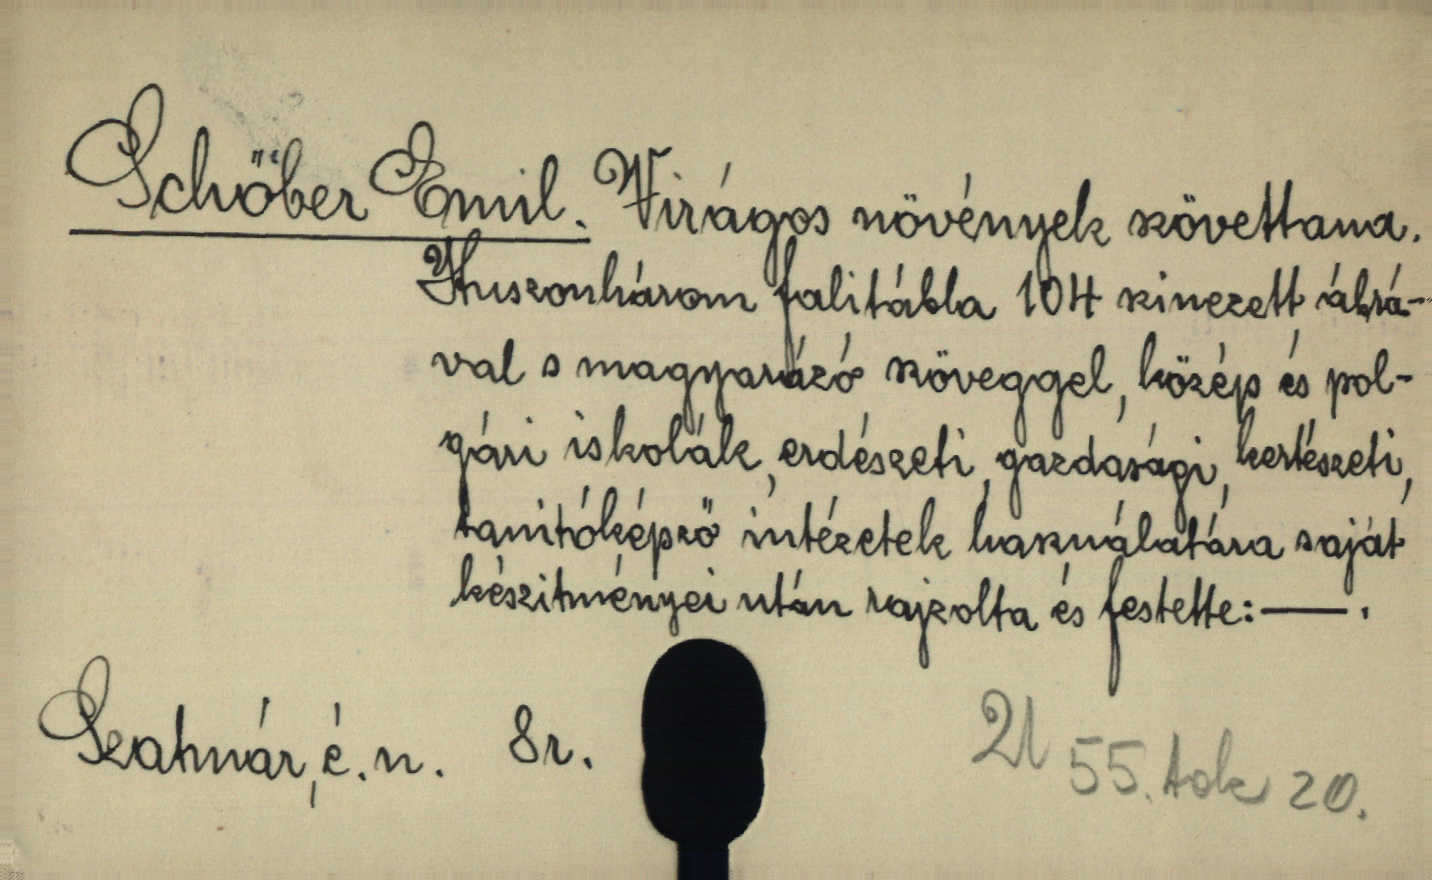 Schőber Emil. Virágos növények szövettana.
Huszonhárom falitábla 104 szinezett ábrá-
val s magyarázó szöveggel, közép és pol-
gári iskolák, erdészeti, gazdasági, kertészeti,
tanitóképző intézetek használatára saját
készitményei után rajzolta és festette: — .
Szatmár, é. n. 8r.
55. tok 20.